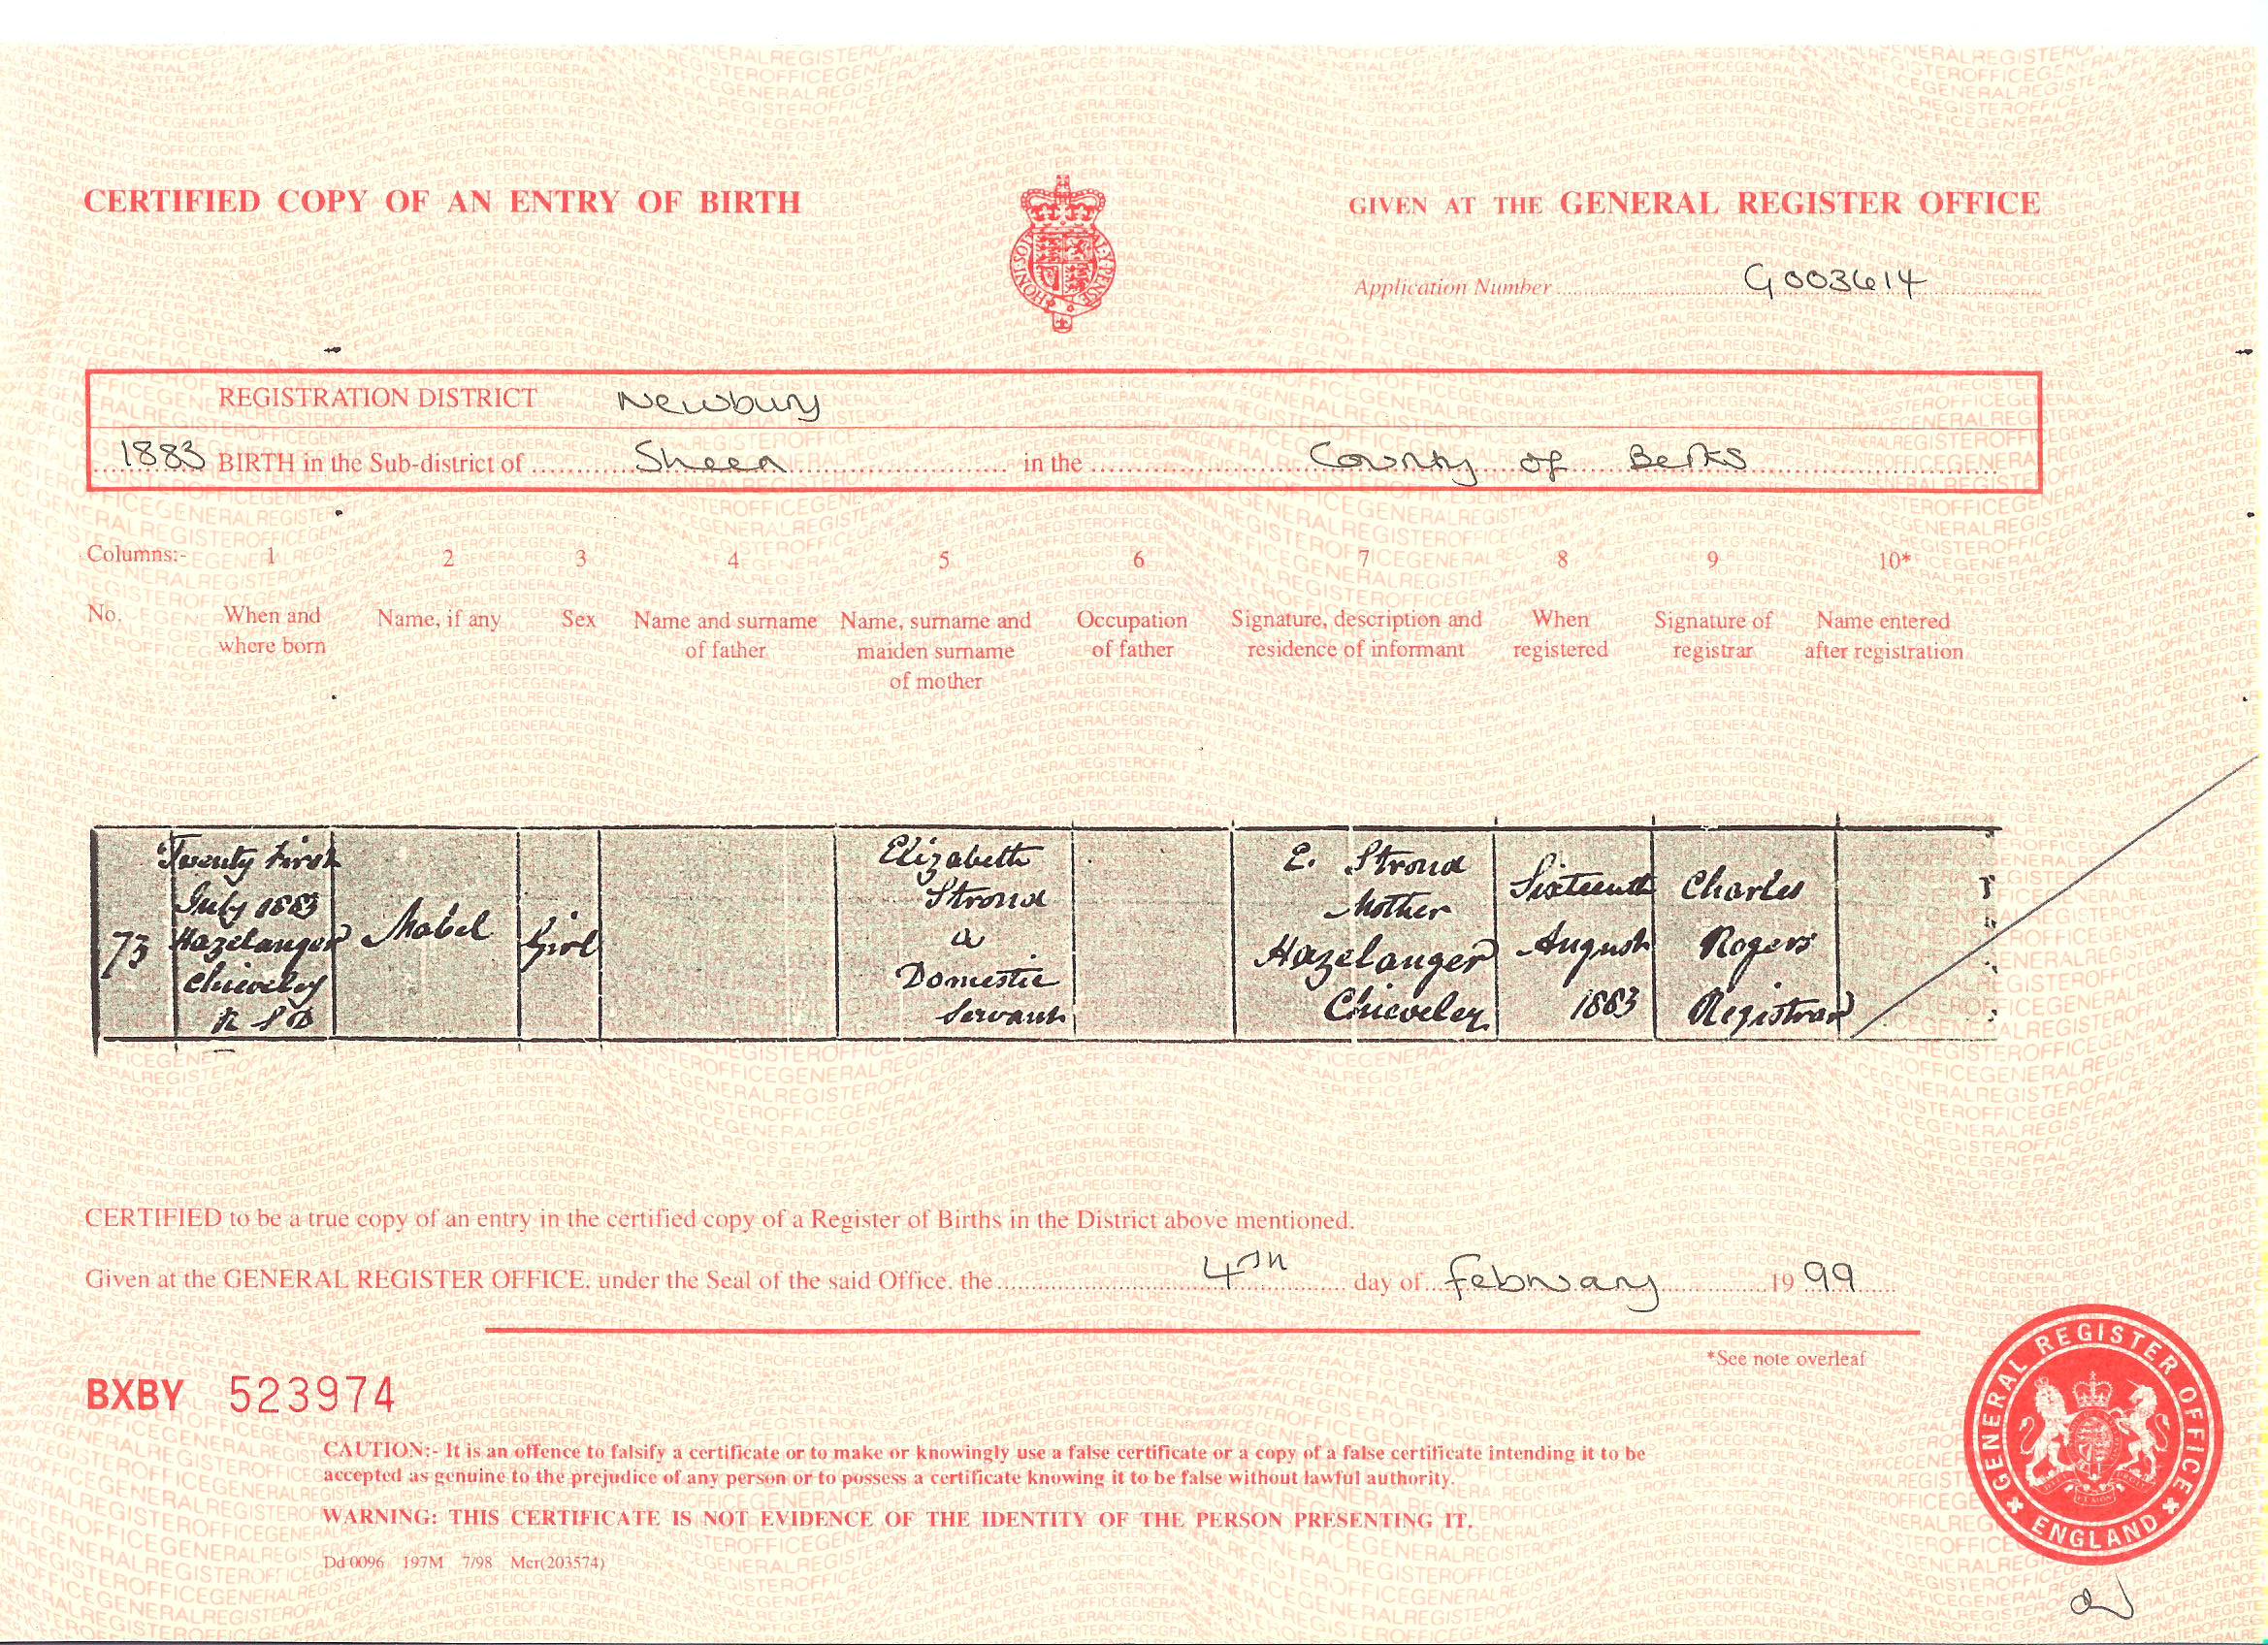 CERTIFIED COPY OF AN ENTRY OF BIRTH
GIVEN AT THE GENERAL REGISTER OFFICE
HONI SOIT Y PENSE
Application Number G003614
REGISTRATION DISTRICT Newbury
1883 BIRTH in the Sub-district of Sheen in the County of Berks
Columns:- 1 2 3 4 5 6 7 8 9 10*
No. When and where born Name, if any Sex Name and surname of father Name, surname and maiden surname of mother Occupation of father Signature, description and residence of informant When registered Signature of registrar Name entered after registration
73
Twenty First
July 1883
Hazelanger
Chieveley
R S D
Mabel
Girl
Elizabeth
Stroud
a
Domestic
Servant
E. Stroud
Mother
Hazelanger
Chieveley
Sixteenth
August
1883
Charles
Rogers
Registrar
CERTIFIED to be a true copy of an entry in the certified copy of a Register of Births in the District above mentioned.
Given at the GENERAL REGISTER OFFICE, under the Seal of the said Office, the 4th day of February 1999
*See note overleaf
BXBY 523974
CAUTION:- It is an offence to falsify a certificate or to make or knowingly use a false certificate or a copy of a false certificate intending it to be
accepted as genuine to the prejudice of any person or to possess a certificate knowing it to be false without lawful authority.
WARNING: THIS CERTIFICATE IS NOT EVIDENCE OF THE IDENTITY OF THE PERSON PRESENTING IT.
Dd 0096 197M 7/98 Mcr(203574)
GENERAL REGISTER OFFICE
ENGLAND